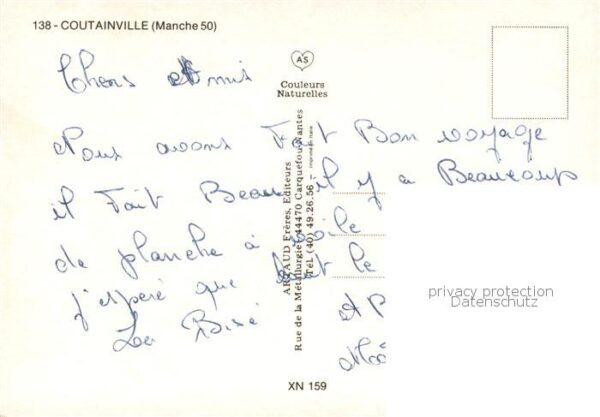 138 - COUTAINVILLE (Manche 50)
AS
Couleurs
Naturelles
Chers Amis
Nous avons Fait Bon voyage
il Fait Beau il y a Beaucoup
de planche à voile
j'espere que tout le
La Bise
et
ARTAUD Frères, Editeurs
Rue de la Métallurgie 44470 Carquefou-Nantes
Tél (40) 49.26.56 - imprimé en Italie
privacy protection
Datenschutz
XN 159